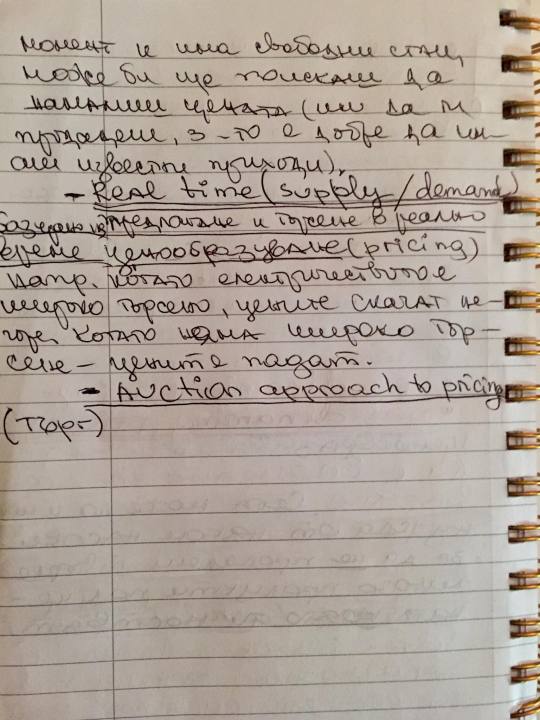 момент и има свободни стаи,
може би ще поискаш да
намалиш цената (или да ги
продадеш, з-то е добре да им-
аш известни приходи).
- Real time (supply/demand)
базирано на предлагане и търсене в реално
време ценообразуване (pricing)
напр. когато електричеството е
широко търсено, цените скачат на-
горе. Когато няма широко тър-
сене - цените падат.
- Auction approach to pricing
(Търг)